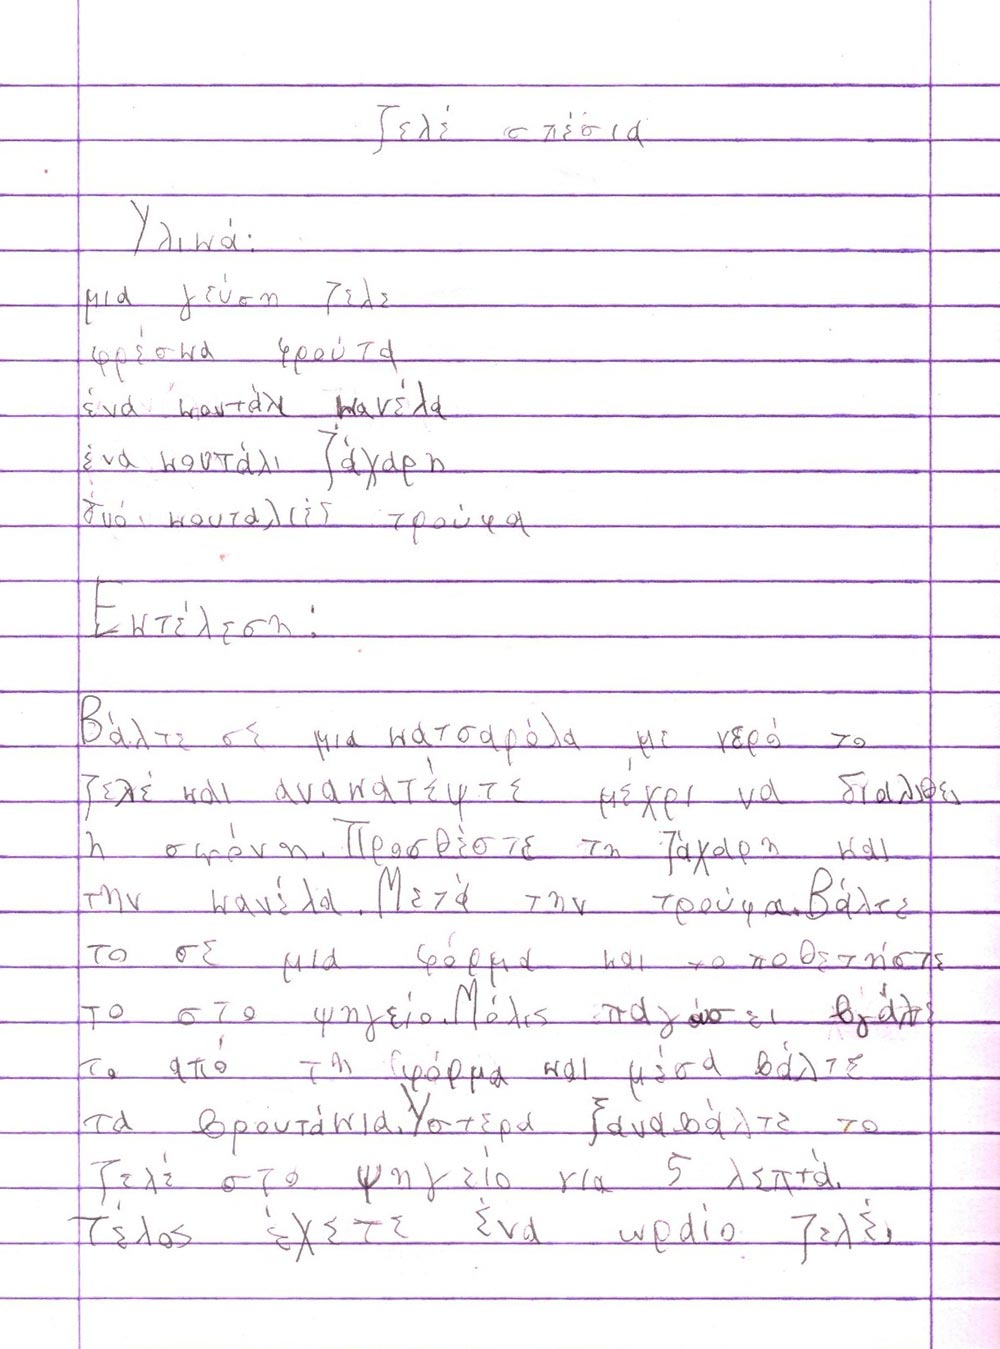 Ζελέ σπέσια
Υλικά:
μια γεύση ζελε
φρέσκα φρούτα
ένα κουτάλι κανέλα
ένα κουτάλι ζάχαρη
δυό κουταλιές τρούφα
Εκτέλεση:
Βάλτε σε μια κατσαρόλα με νερό το
ζελέ και ανακατέψτε μέχρι να διαλιθει
η σκόνη. Προσθέστε τη ζάχαρη και
την κανέλα. Μετά την τρούφα. Βάλτε
το σε μια φόρμα και τοποθετήστε
το στο ψηγείο. Μόλις παγώσει βγάλτε
το από τη φόρμα και μέσα βάλτε
τα βρουτάκια. Υστερα ξαναβάλτε το
ζελέ στο ψηγείο για 5 λεπτά.
Τέλος έχετε ένα ωραίο ζελέ.